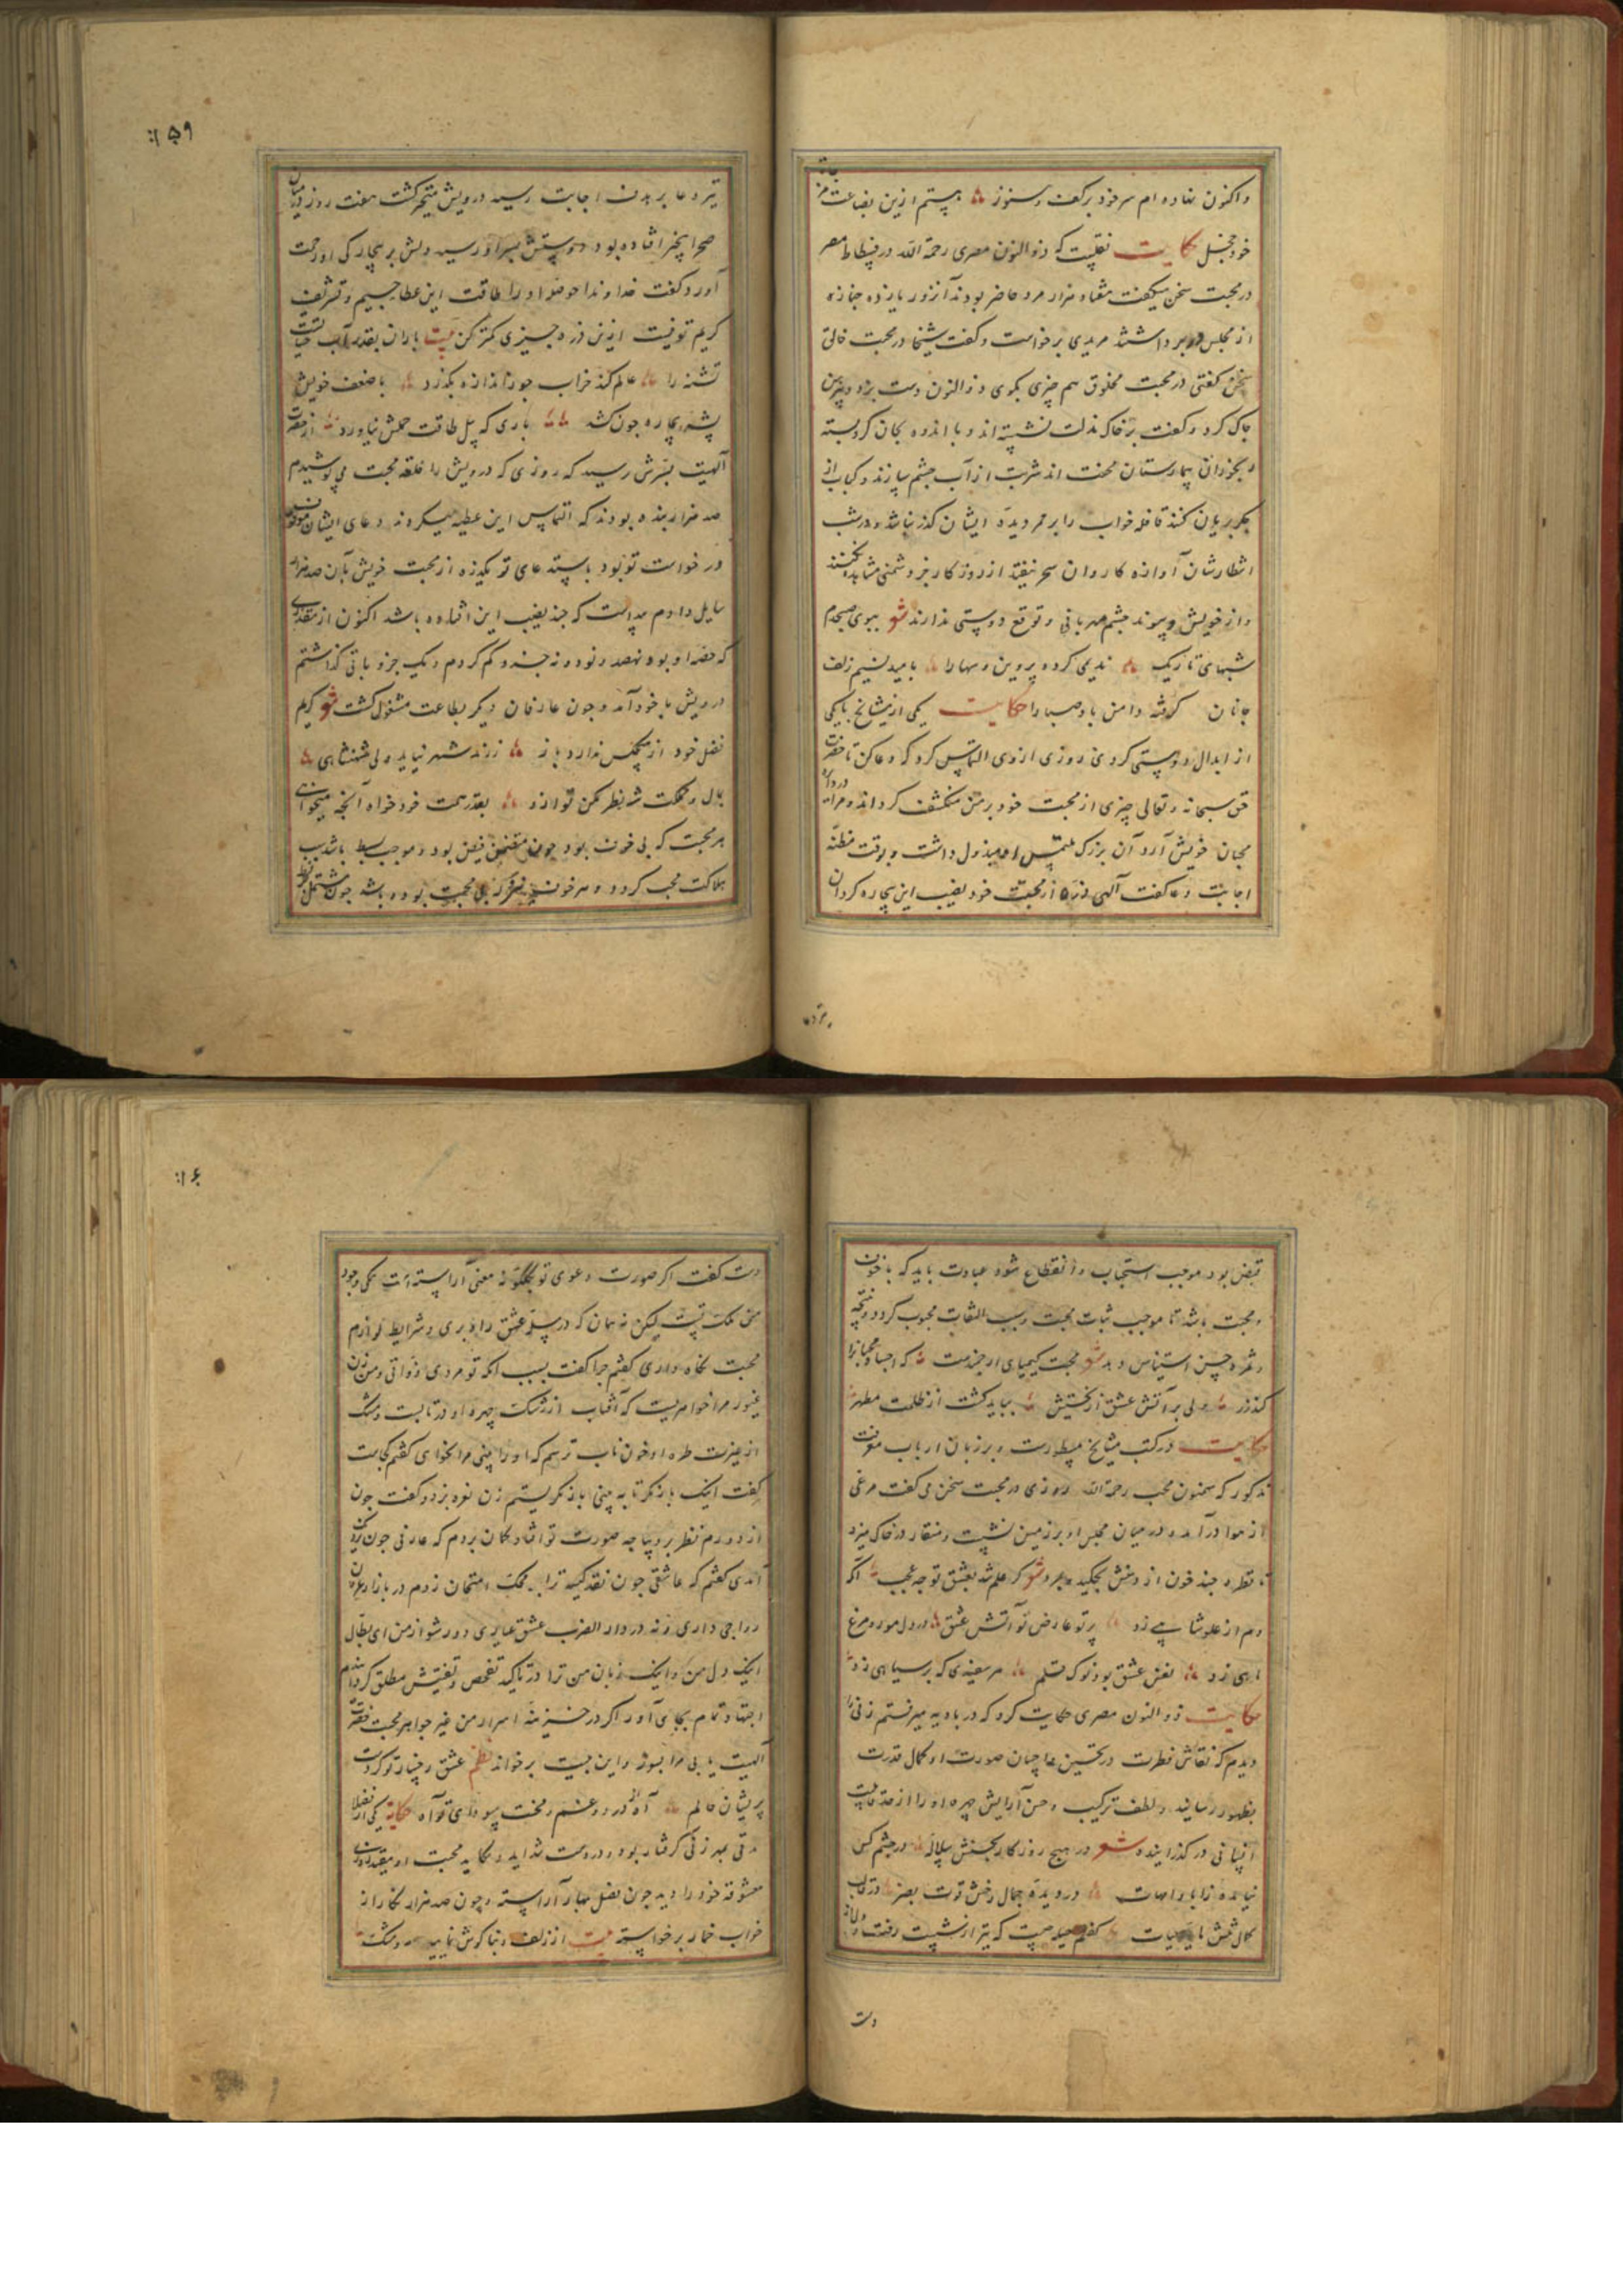 واکنون نهاده ام سر خود برکف وسنوز هستم ازین بضاعت مزجاة
خود خجل حکایت نقلست که ذوالنون مصری رحمة الله در فسطاط مصر
در محبت سخن میگفت هفتاد هزار مرد حاضر بودند آنروز یازده جنازه
از مجلس او برداشتند مریدی برخواست وگفت شیخا در محبت خالق
سخن گفتی در محبت مخلوق هم چیزی بگوی ذوالنون دست بزد وپیرهن
چاک کرد وگفت بر خاک مذلت نشسته اند و با اندوه بجان گرو بسته
رنجوران بیمارستان محنت اند شربت از آب چشم سازند وکباب از
جگر بریان کنند قافله خواب را بر ممر دیده ایشان گذر نباشد ودر شب
انتظارشان آوازه کاروان سحر نیفتد از روزگار جز دشمنی مشاهده نکنند
واز خویش وپیوند چشم مهربانی وتوقع دوستی ندارند شعر ببوی صبحدم
شبهای تاریک ندیمی کرده پروین وسها را بامید نسیم زلف
جانان گرفته دامن باد صبا را حکایت یکی از مشایخ با یکی
از ابدال دوستی کردی روزی از وی التماس کرد که دعا کن تا حضرت
حق سبحانه وتعالی چیزی از محبت خود بر من منکشف گرداند ومرا در دایره
محبان خویش آرد آن بزرگ ملتمس او مبذول داشت وبوقت مظنه
اجابت دعا گفت الهی ذره از محبت خود نصیب این بیچاره گردان
تیر دعا
۱۵۹
تیر دعا بر هدف اجابت رسید درویش متحیر گشت هفت روز در میان
صحرا بیخبر افتاده بود دوستش بسر او رسید دلش بر بیچارگی او رحمت
آورد وگفت خداوندا حوصله او را طاقت این عطا جسیم وتشریف
کریم تو نیست ازین ذره چیزی کمتر کن بیت باران بقدر آب حیاتست
تشنه را عالم کند خراب چو ز اندازه بگذرد با ضعف خویش
پشه بیچاره چون کشد باری که پیل طاقت حملش نیاورد از حضرت
الهیت بسرش رسید که روزی که درویش را خلعه محبت می پوشیدم
صد هزار بنده بودند که التماس این عطیه میکردند دعای ایشان موقوف
درخواست تو بود باستدعای تو یکذره از محبت خویش بآن صد هزار
سایل دادم پیداست که چند نصیب این افتاده باشد اکنون از مقداری
که حصه او بود نهصد ونود ونه جزو کم کردم ویک جزو باقی گذاشتم
درویش با خود آمد وچون عارفان دیگر بطاعت مشغول گشت شعر کرم
فضل خود از هیچکس ندارد باز زرند شهر نیاید ولی شهنشاهی
بمال ومملکت شه نظر مکن نوازد بقدر همت خود خواه آنچه میخواهی
هر محبت که بی خوف بود چون متضمن قبض بود وموجب بسط باشد سبب
هلاکت محب گردد وهر خوف که بی محبت بوده باشد چون مشتمل بر فرط
قبض بود موجب استحباب وانقطاع شود عبادت باید که با خوف
ومحبت باشد تا موجب ثبات محبت وسبب التفات محبوب گردد ونتیجه
وثمره حسن استیناس دهد شعر محبت کیمیای ارجمندست که اجساد محبانرا
گذارد ولی بر آتش عشق از نخستش بباید گشت از ظلمت مطهر
حکایت در کتب مشایخ مسطورست وبر زبان ارباب معرفت
مذکور که سمنون محب رحمة الله روزی در محبت سخن می گفت مرغی
از هوا درآمد ودر میان مجلس او بر زمین نشست ومنقار در خاک میزد
تا قطره چند خون از دهنش بچکید وبمرد شعر گر علم شد بعشق تو چه عجب آنکه
دم از علو شاهی زد پرتو عارض تو آتش عشق در دل مور ومرغ
ماهی زد نقش عشق بود نوک قلم هر سفیدی که بر سیاهی زد
حکایت ذوالنون مصری حکایت کرد که در بادیه میرفتم زنی را
دیدم که نقاش فطرت در تحسین صورت او کمال قدرت
بظهور رسانیده ولطف ترکیب وحسن آرایش چهره او را از حد غایت
انسانی در گذرانیده شعر در هیچ روزگار بحسنش سلاله در چشم کس
نیامده از ابا وامهات در دیده جمال رخش قوت بصر در قالب
کمال لبش مایه حیات گفتم حیله چیست که تیر از شست رفت ودل از
دست
۱۶۰
دست گفت اگر صورت دعوی تو بگلگونه معنی آراسته است یکی وجود
منی ملک تست لیکن نه همان که در سبیل عشق راه بری وشرایط ولوازم
محبت نگاه داری گفتم چرا گفت بسبب آنکه تو مردی ذواقی ومن زن
غیور مرا خواهریست که آفتاب از رشک چهره او در تابست ومشک
از غیرت طره او خون ناب ترسم که او را بینی مرا نخواهی گفتم کجاست
گفت اینک باز نگر تا به بینی باز نگریستم زن نعره بزد وگفت چون
از دورم نظر بر دیباچه صورت تو افتاد گمان بردم که عارفی چون نزدیک
آمدی گفتم که عاشقی چون نقد کیسه ترا بمحک امتحان زدم در بازار عرفان
رواجی داری ونه در دار الضرب عشق عیاری دور شو از من ای بطال
اینک دل من واینک زبان من ترا در تاکید تفحص وتفتیش مطلق گردانیدم
اجتهاد تمام بجای آور اگر در خزینه اسرار من غیر جواهر محبت حضرت
الهیت یابی مرا بسوز واین بیت برخواند نظم عشق رخسار تو کردست
پریشان حالم آه از درد وغم ومحنت وسودای تو آه حکایة یکی از فضلا
وقتی بمهر زنی گرفتار بود ودر دست شداید ومکاید محبت او مقید روزی
معشوقه خود را دید چون فصل بهار آراسته وچون صد هزار نگار از
خواب خمار برخواسته بیت از زلف وبناگوش نماینده ومشک